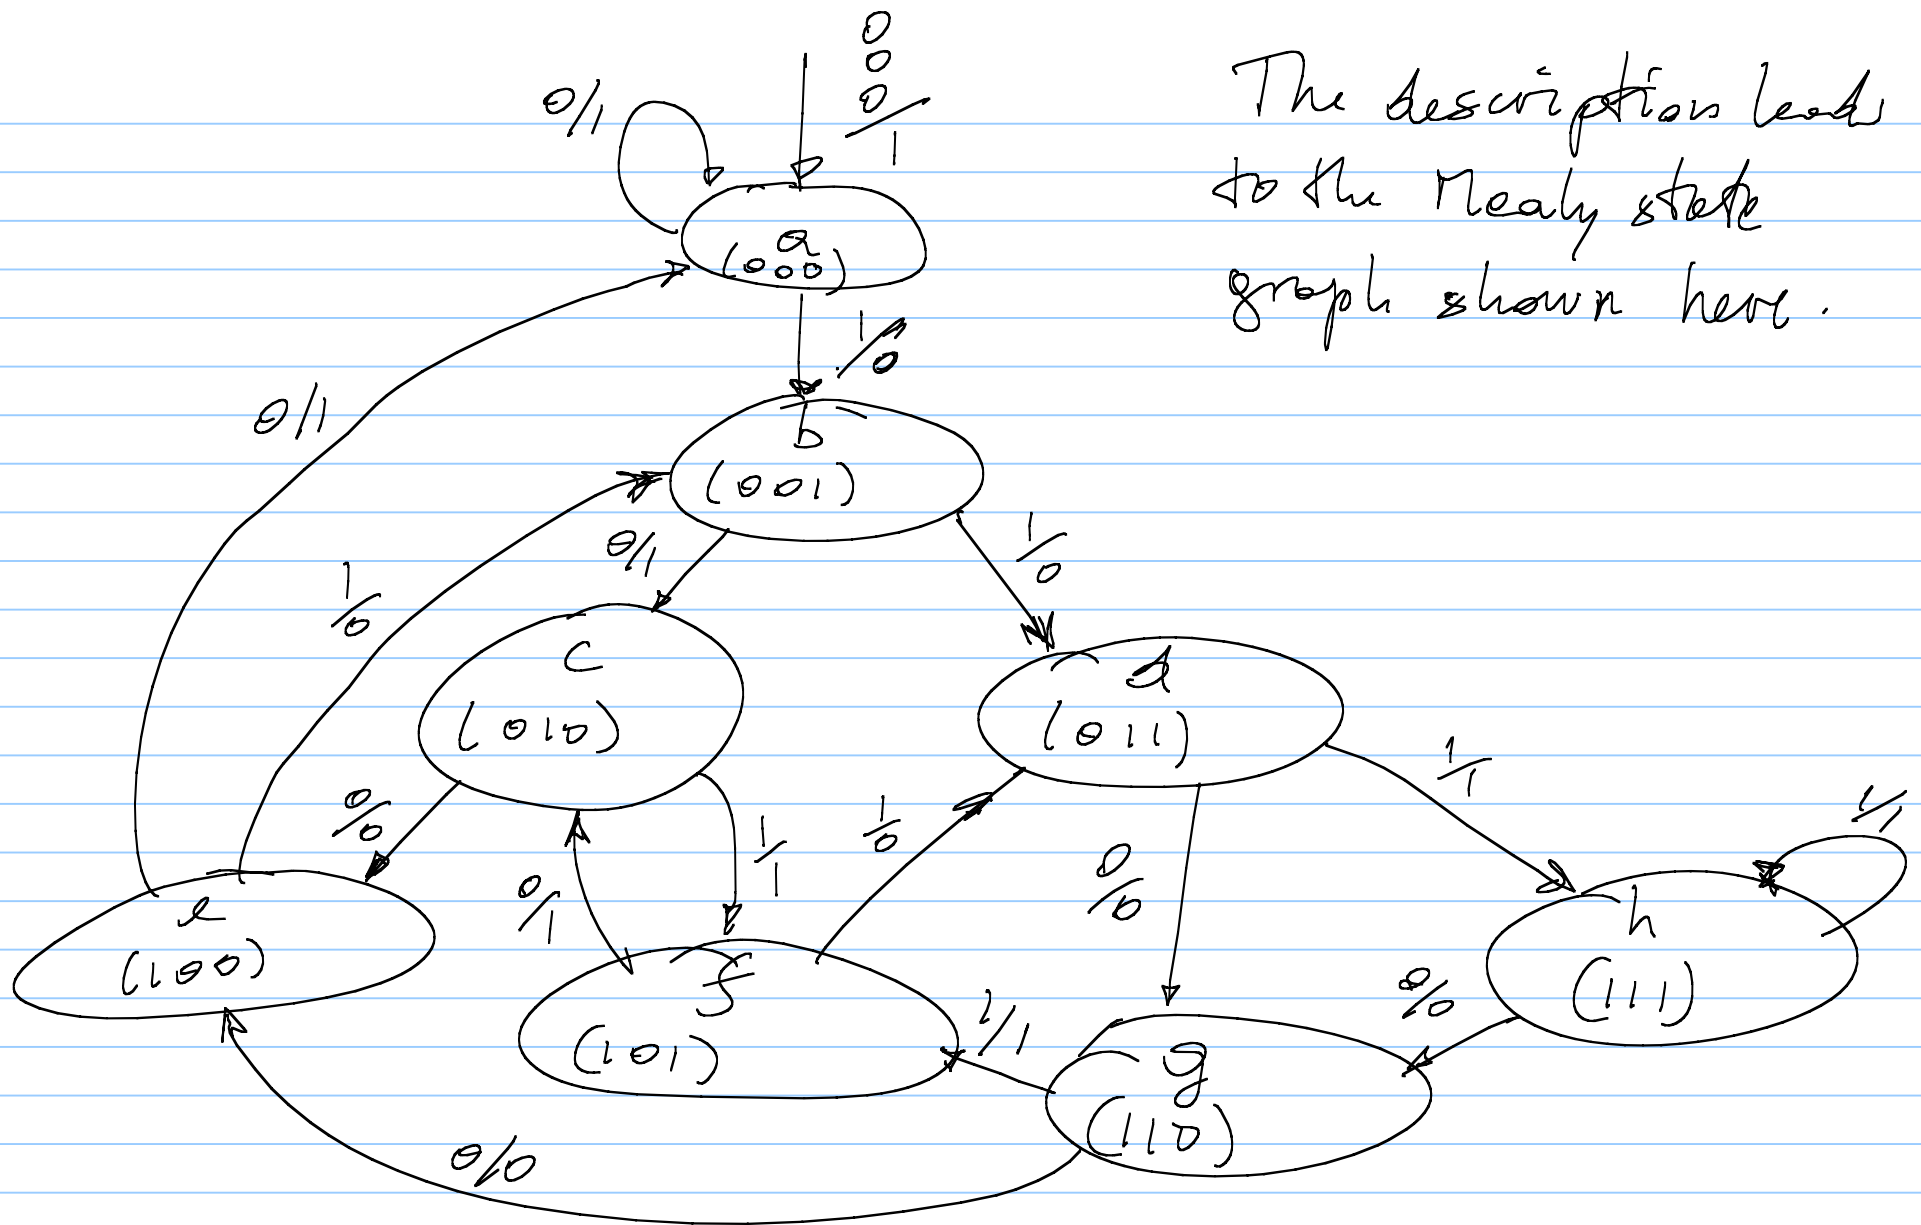 0
0
0/1
0/1
The description leads
to the Mealy state
graph shown here.
a
(000)
1/0
0/1
b
(001)
0/1
1/0
1/0
c
(010)
d
(011)
1/1
0/0
1/1
1/0
0/0
1/1
0/1
e
(100)
f
(101)
h
(111)
0/0
1/1
g
(110)
0/0